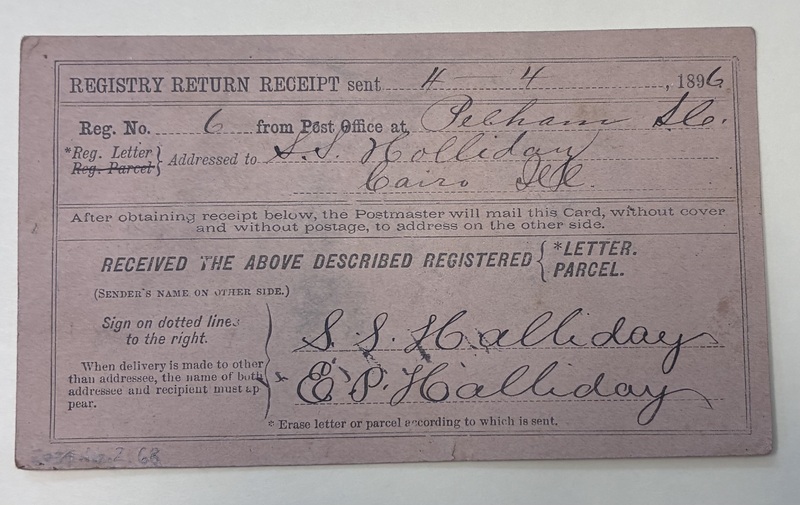 REGISTRY RETURN RECEIPT sent 4 - 4, 1896
Reg. No. 6 from Post Office at Pelham S.C.
*Reg. Letter } Addressed to S.S. Holliday
Reg. Parcel
Cairo Ill.
After obtaining receipt below, the Postmaster will mail this Card, without cover
and without postage, to address on the other side.
RECEIVED THE ABOVE DESCRIBED REGISTERED { *LETTER.
PARCEL.
(SENDER'S NAME ON OTHER SIDE.)
Sign on dotted lines
to the right.
S. S. Halliday
When delivery is made to other
than addressee, the name of both
addressee and recipient must ap-
pear.
E. P. Halliday
* Erase letter or parcel according to which is sent.